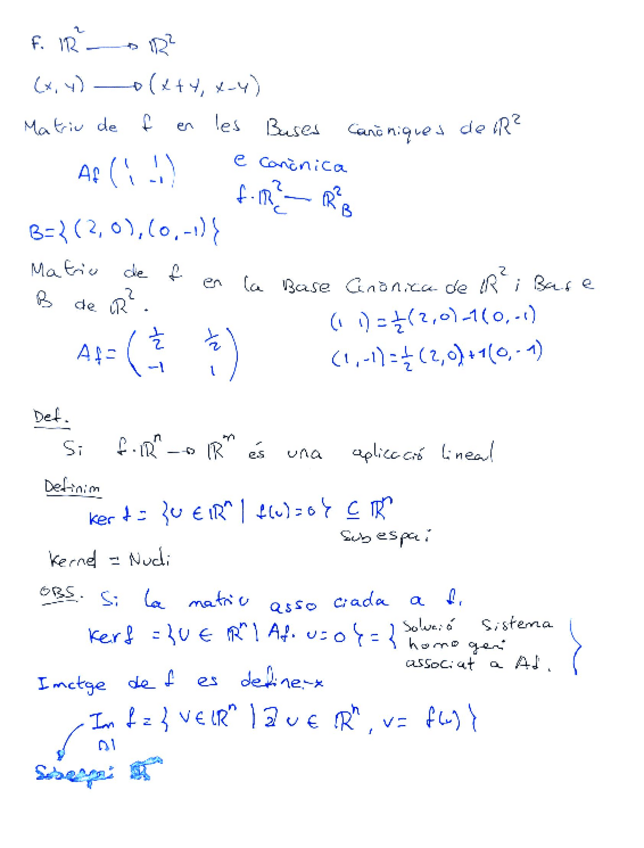 f. ℝ² → ℝ²
(x, y) → (x+y, x-y)
Matriu de f en les Bases canòniques de ℝ²
Af (1 1 / 1 -1) e canònica
f. ℝ²_C — ℝ²_B
B={(2,0),(0,-1)}
Matriu de f en la Base Canònica de ℝ² i Base
B de ℝ².
(1 1)=½(2,0)-1(0,-1)
Af= (½ ½ / -1 1) (1,-1)=½(2,0)+1(0,-1)
Def.
Si f. ℝⁿ → ℝᵐ és una aplicació lineal
Definim
Ker f = {u ∈ ℝⁿ | f(u)=0} ⊆ ℝⁿ
Subespai
Kernel = Nucli
OBS. Si la matriu associada a f.
Ker f = {u ∈ ℝⁿ | Af. u=0} = {Solució Sistema
homogeni
associat a Af.}
Imatge de f es define-x
Im f={ v∈ℝⁿ | ∃ u ∈ ℝⁿ, v= f(u)}
Subespai